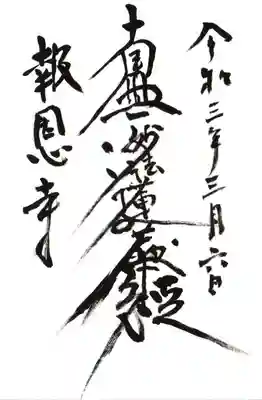 令和三年三月六日
南無妙法蓮華經
報恩寺